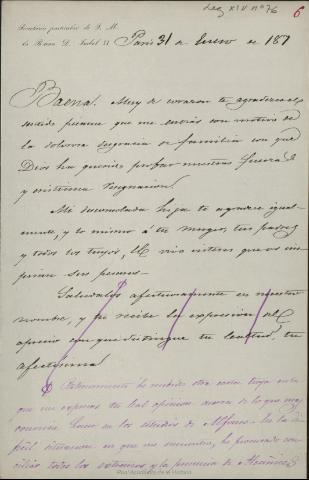 Leg XIV nº 76
6
Secretaría particular de S. M.
la Reina D. Isabel II
Paris 31 de Enero de 187
Baena! Muy de corazon te agradezco el
sentido pésame que me envias con motivo
de la dolorosa desgracia de familia con que
Dios ha querido probar nuestras fuerzas
y cristiana resignacion.
Mi desconsolada hija te agradece igual-
mente, y lo mismo á tu mujer, tus padres
y todos los tuyos, el vivo interes que os ins-
piran sus penas.
Saludalos afectuosamente en nuestro
nombre, y tu recibe la expresion del
aprecio con que distingue tu lealtad, tu
afectisima
Ultimamente he recibido otra carta tuya en la
que me expones tu leal opinion acerca de lo que mas
conviene hacer en los estudios de Alfonso. En la di-
ficil situacion en que me encuentro, he procurado con-
ciliar todos los extremos y la presencia de
Real Academia de la Historia